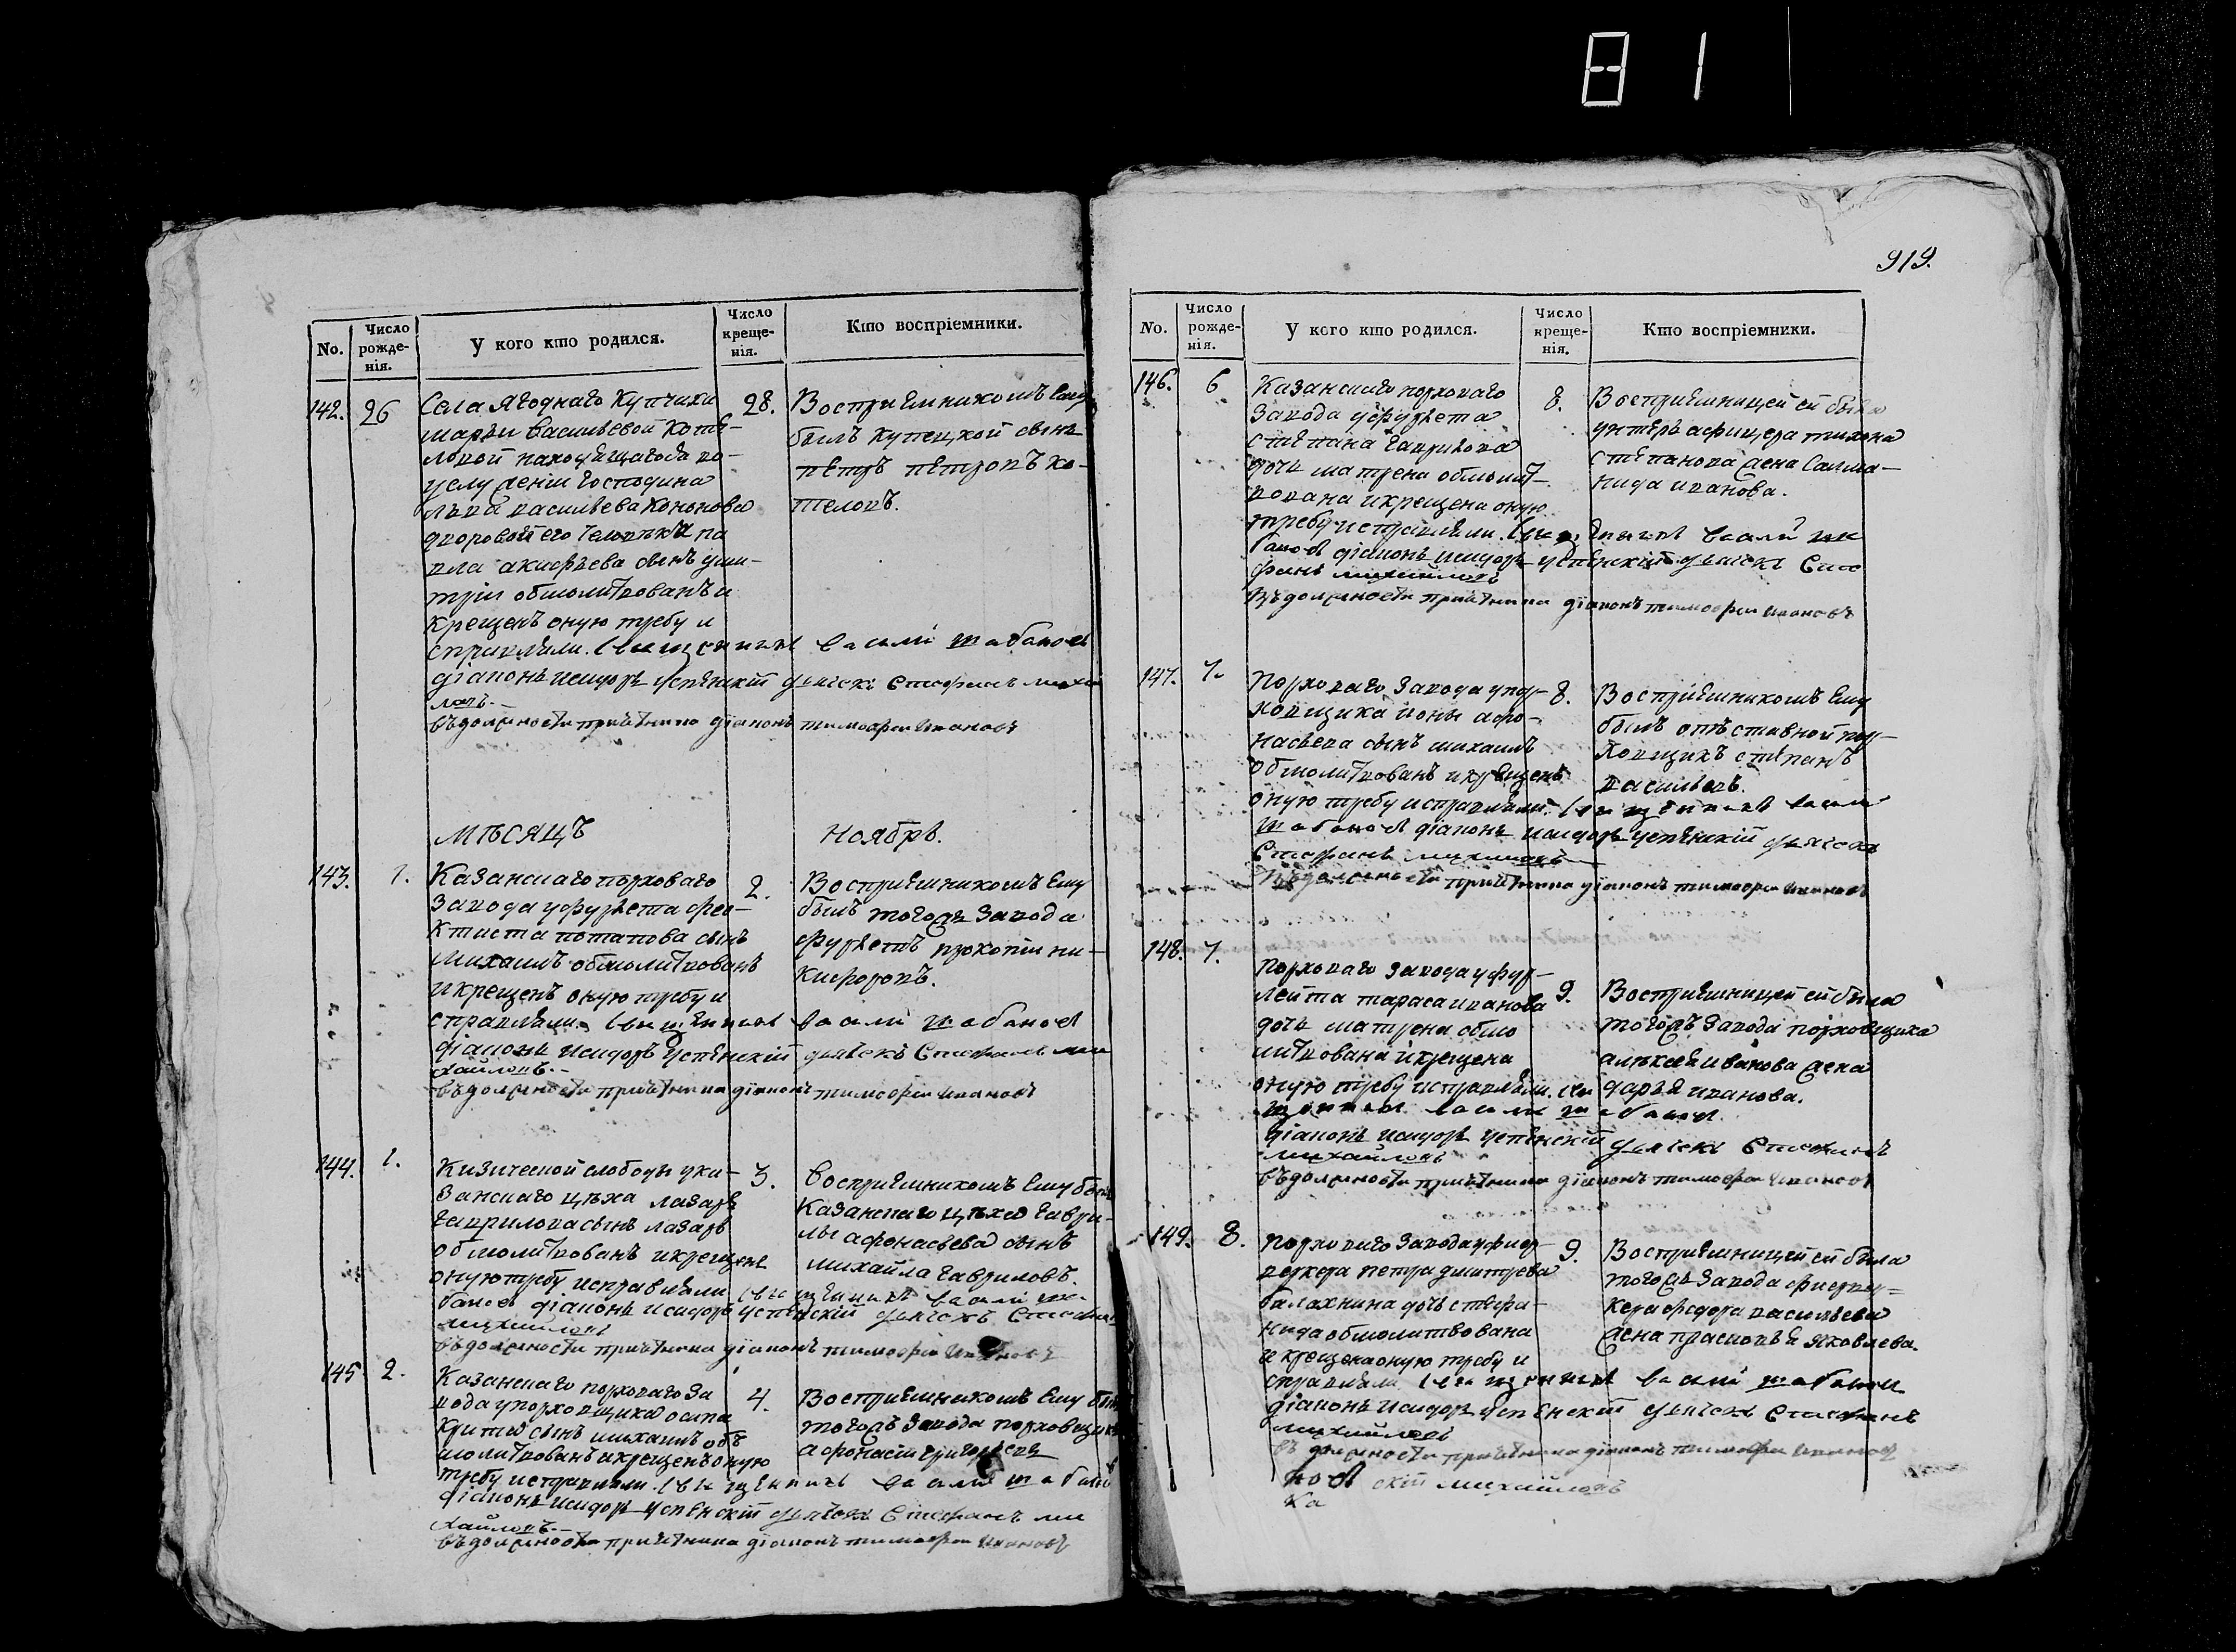 81
919.
No.
Число рожденія.
У кого кто родился.
Число крещенія.
Кто воспріемники.
142. 26
Села Ягоднаго Купчихи
марьи васильевой Коте-
ловой находящагося во
услуженіи Господина
льва васильева Кононова
дворовой его человѣка па
вла акифьева сынъ дми-
трій обмолитвованъ и
крещенъ оную требу и
справляли. священникъ василі шабановъ
діаконъ исидоръ успенскій дьячекъ Стефанъ михаи
ловъ.
въ должности причетника діаконъ тимофеи ивановъ
28.
Воспріемникомъ ему
былъ купецкой сынъ
петръ петровъ ко-
теловъ.
мѣсяцъ Ноябрь.
143. 1.
Казанскаго пороховаго
завода у фурлета фео-
ктиста потапова сынъ
Михаилъ обмолитвованъ
и крещенъ оную требу и
справляли. священникъ василі шабановъ
діаконъ исидоръ успенскій дьячекъ Стефанъ ми
хайловъ.
въ должности причетника діаконъ тимофеи ивановъ
2.
Воспріемникомъ ему
былъ тогожъ завода
фурлетъ прокопіи ни-
кифоровъ.
144. 1.
Кизической слободы у ка-
занскаго цѣха лазаря
гаврилова сынъ лазарь
обмолитвованъ и крещенъ
оную требу исправляли священникъ василі ша
бановъ діаконъ исидоръ успенскій дьячекъ Стефанъ
михайловъ
въ должности причетника діаконъ тимофеи ивановъ
3.
Воспріемникомъ ему былъ
Казанскаго цѣха гаври-
лы афонасьева сынъ
михайла гавриловъ.
145 2.
Казанскаго пороховаго за
вода у пороховщика осипа
сынъ михаилъ об
молитвованъ и крещенъ оную
требу исправляли. священникъ василі шабано
діаконъ исидоръ успенскій дьячекъ Стефанъ ми
хайловъ.
въ должности причетника діаконъ тимофеи ивановъ
4.
Воспріемникомъ ему былъ
тогожъ завода пороховщикъ
афонасіи григорьевъ
No.
Число рожденія.
У кого кто родился.
Число крещенія.
Кто воспріемники.
146. 6
Казанскаго пороховаго
завода у фурлета
степана гаврилова
дочь матрена обмолит-
вована и крещена оную
требу исправляли. священникъ василі ша
бановъ діаконъ исидоръ успенскій дьячекъ Сте
фанъ михайловъ
въ должности причетника діаконъ тимофеи ивановъ
8.
Воспріемницей ей была
унтеръ афицера тихона
степанова жена Салма-
нида иванова.
147. 7.
пороховаго завода у поро-
ховщика ионы афо-
насьева сынъ михаилъ
обмолитвованъ и крещенъ
оную требу исправляли. священникъ васили
шабановъ діаконъ исидоръ успенскій дьячекъ
Стефанъ михайловъ
въ должности причетника діаконъ тимофеи ивановъ
8.
Воспріемникомъ ему
былъ отставной поро-
ховщикъ степанъ
васильевъ.
148. 7.
пороховаго завода у фур-
лейта тараса иванова
дочь матрена обмо
литвована и крещена
оную требу исправляли. свя
щенникъ васили шабановъ
діаконъ исидоръ успенскій дьячекъ Стефанъ
михайловъ
въ должности причетника діаконъ тимофеи ивановъ
9.
Воспріемницей ей была
тогожъ завода пороховщика
алексея иванова жена
дарья иванова.
149. 8.
пороховаго завода у феер-
веркера петра дмитрева
балахнина дочь стефа-
нида обмолитвована
и крещена оную требу и
справляли священникъ васили шабанов
діаконъ исидоръ успенскій дьячекъ Стефанъ
михайловъ
въ должности причетника діаконъ тимофеи ивановъ
9.
Воспріемницей ей была
тогожъ завода фиерве-
кера федора васильева
жена прасковья Яковлева.
новъ скій михайловъ
ка